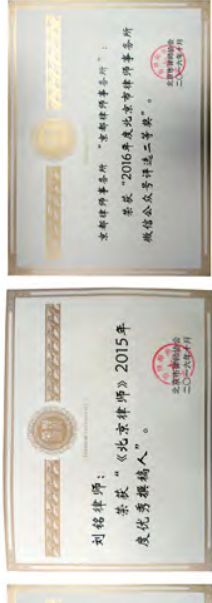 京都律师事务所 “京都律师事务所”:
荣获“2016年度北京市律师事务所
微信公众号评选二等奖”。
北京市律师协会
二〇一六年十月
刘铭律师:
荣获“《北京律师》2015年
度优秀撰稿人”。
北京市律师协会
二〇一六年十月